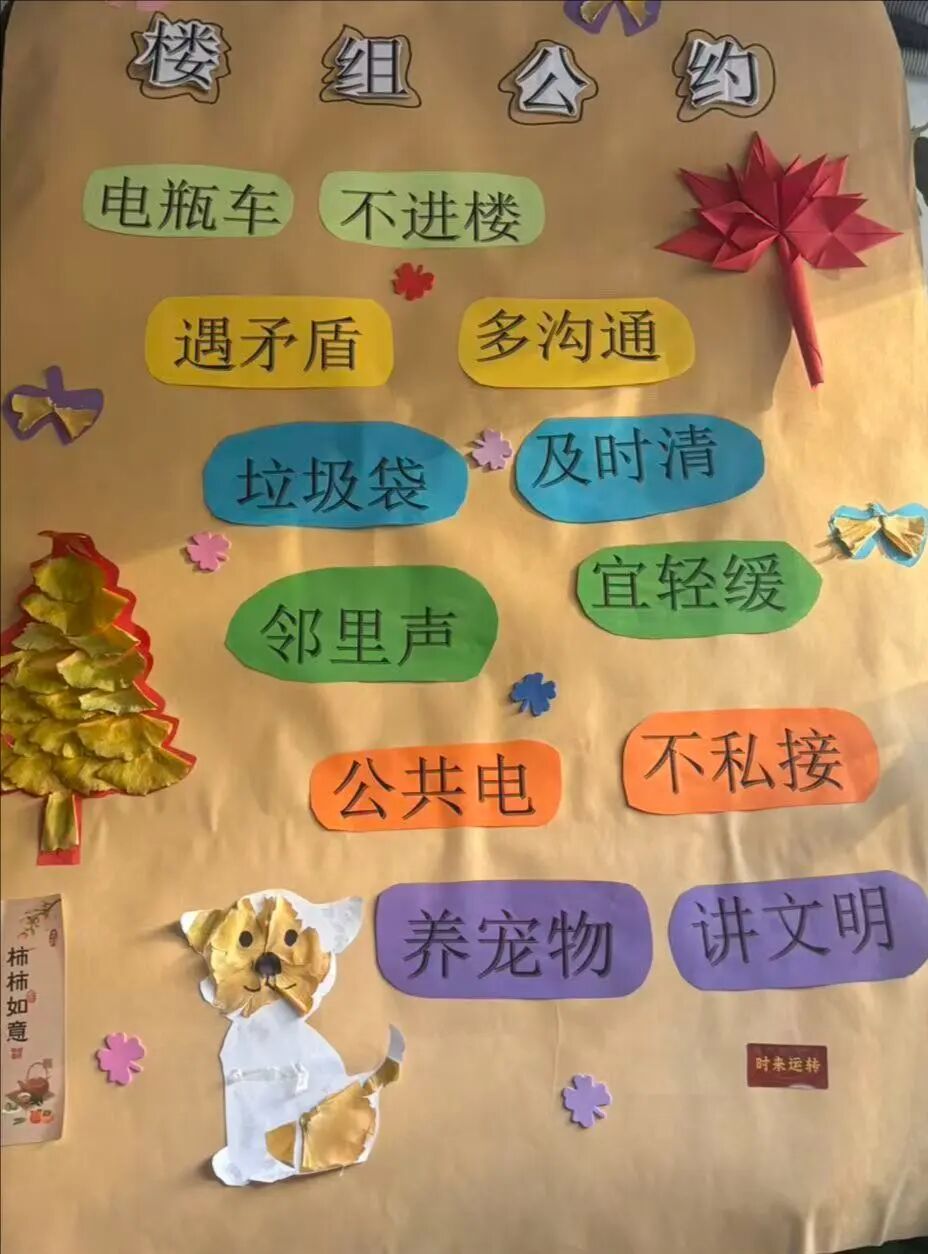 楼组公约
电瓶车 不进楼
遇矛盾 多沟通
垃圾袋 及时清
邻里声 宜轻缓
公共电 不私接
养宠物 讲文明
柿柿如意
时来运转